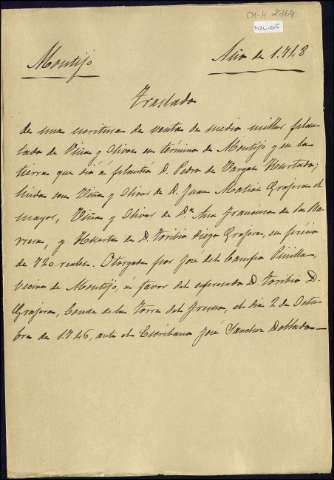 Montijo Año de 1.748
Traslado
de una escritura de venta de medio millar plan-
tado de Viña y olivar en término de Montijo y en la
tierra que dió á plantío D. Pedro de Vargas Hurtado;
linda con Viña y olivar de D. Juan Matías Grajera el
mayor, Viña y olivar de Dª Ana Francisca de la Bar-
rera, y Huerta de D. Toribio Diego Grajera, en precio
de 720 reales. Otorgada por José del Campo
vecino de Montijo, á favor del expresado D. Toribio D.
Grajera, Conde de la Torre del Fresno, el dia 2 de Octu-
bre de 1746, ante el Escribano José Sanchez Doblado